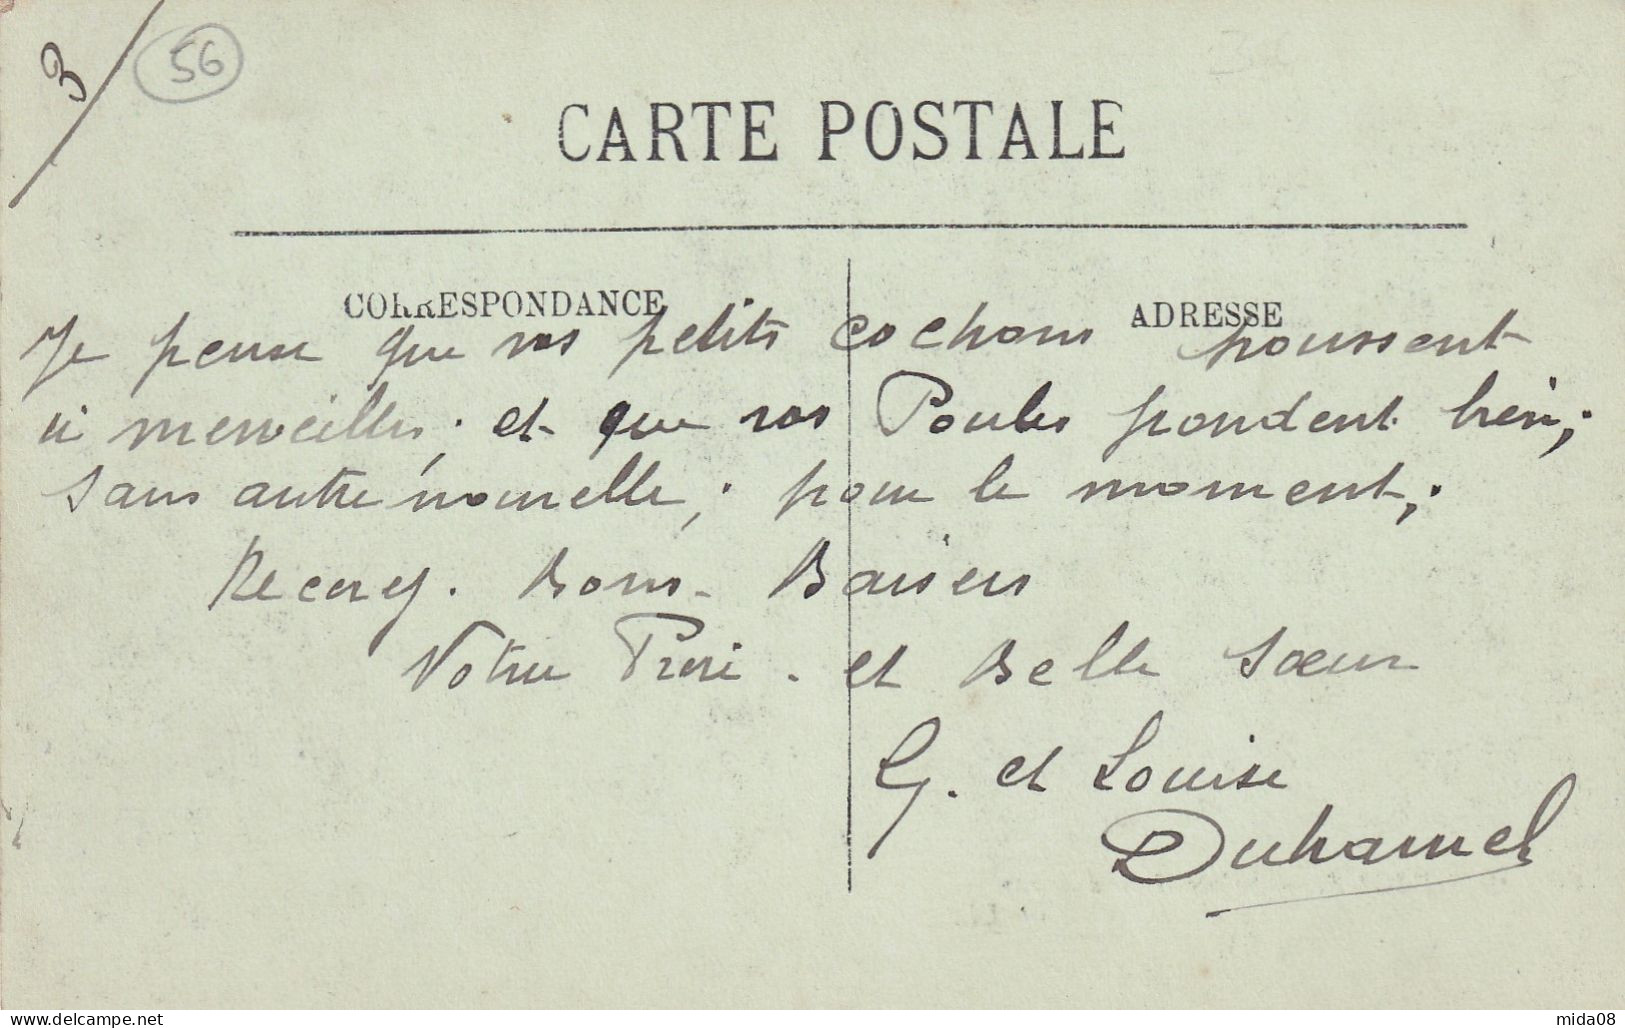 3/
56
CARTE POSTALE
CORRESPONDANCE
ADRESSE
Je pense que vos petits cochons poussent
à merveilles; et que vos Poules pondent bien;
sans autre nouvelle; pour le moment;
Recevez. Bons - Baisers
Votre Frère - et Belle Sœur
G. et Louise
Duhamel
www.delcampe.net
mida08